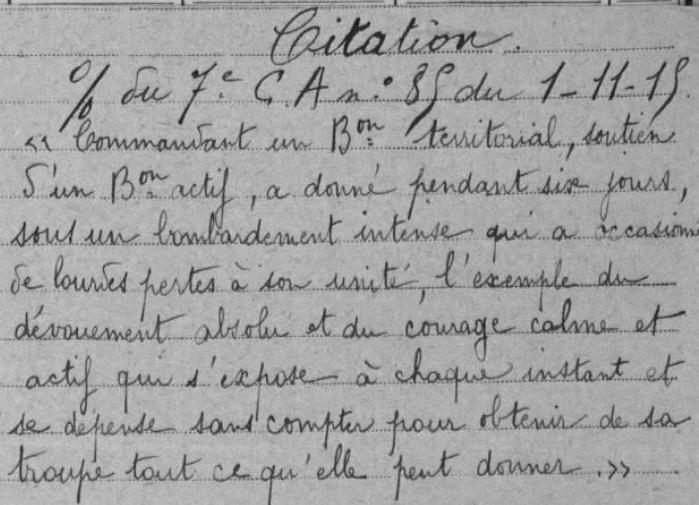 Citation.
% du 7e C.A n° 85 du 1-11-15.
« Commandant un Bon territorial, soutien
d'un Bon actif, a donné pendant six jours,
sous un bombardement intense qui a occasionn
de lourdes pertes à son unité, l'exemple du
dévouement absolu et du courage calme et
actif qui s'expose à chaque instant et
se dépense sans compter pour obtenir de sa
troupe tout ce qu'elle peut donner. »